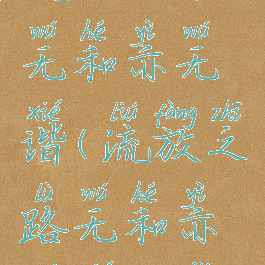 wú hé yì wú
无和亦无
xié liú fàng zhī
谐(流放之
lù wú hé yì
路无和亦